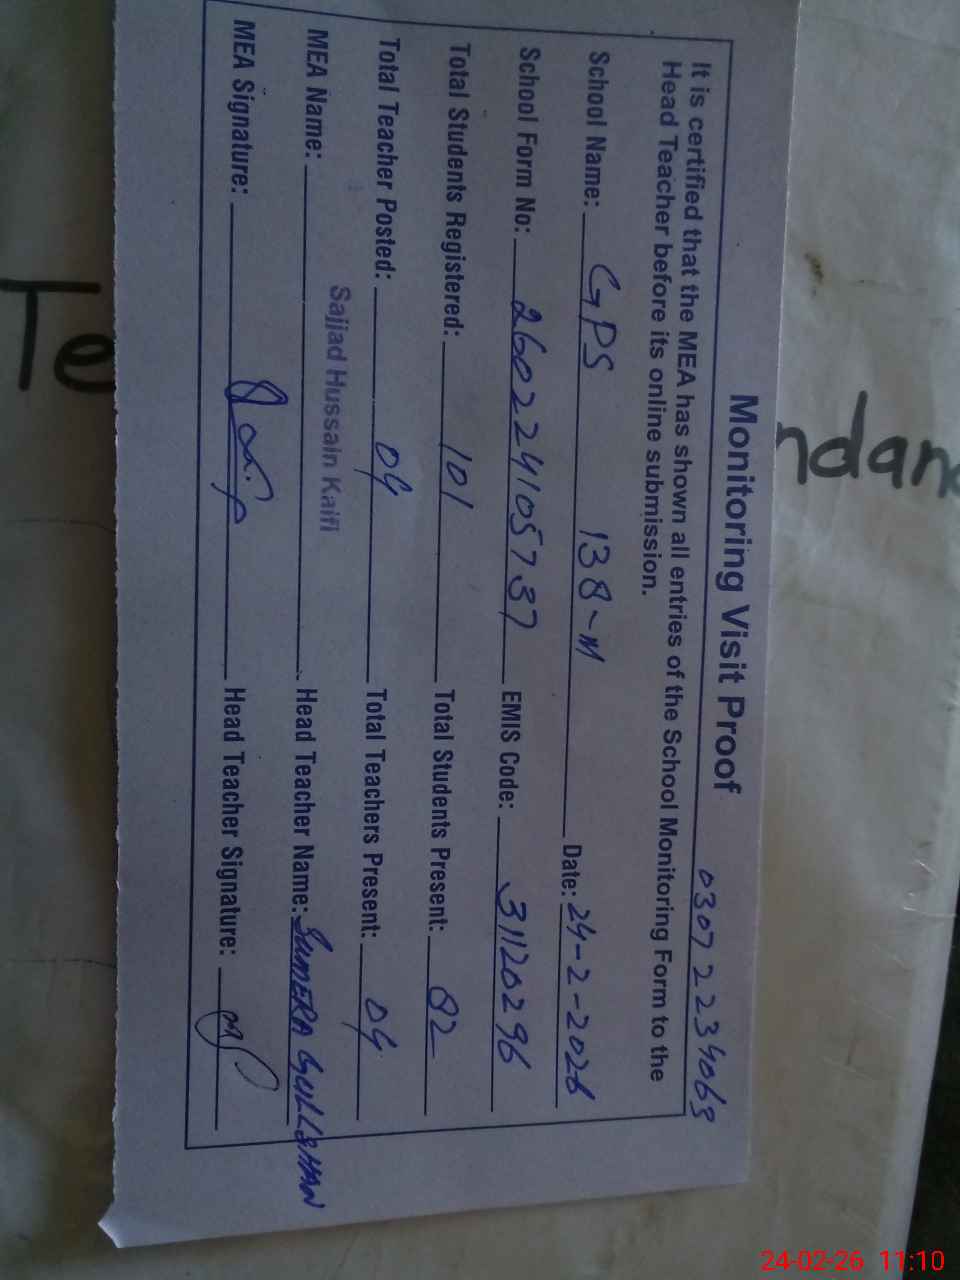 Monitoring Visit Proof
0307 2234068
It is certified that the MEA has shown all entries of the School Monitoring Form to the
Head Teacher before its online submission.
School Name: GPS 138-M Date: 24-2-2026
School Form No: 260224105737 EMIS Code: 31120296
Total Students Registered: 101 Total Students Present: 92
Total Teacher Posted: 04 Total Teachers Present: 04
MEA Name: Sajjad Hussain Kaifi Head Teacher Name: SUMERA GULLSHAN
MEA Signature: Head Teacher Signature:
Te
ndan
24-02-26 11:10